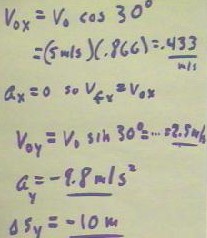 Vox = Vo cos 30°
= (5 m/s)(.866) = .433 m/s
ax = 0 so Vfx = Vox
Voy = Vo sin 30° = ... = 2.5 m/s
ay = -9.8 m/s²
Δsy = -10 m